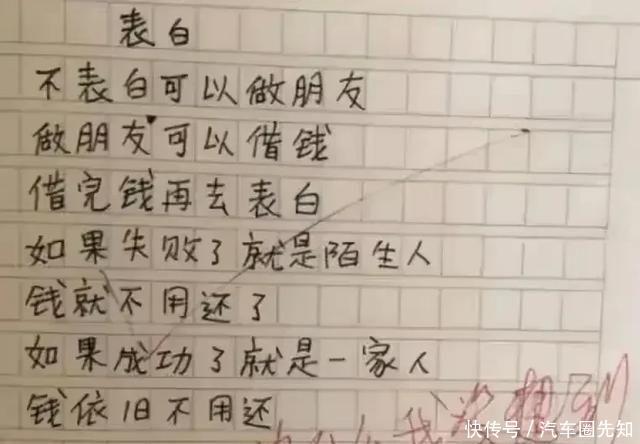 表白
不表白可以做朋友
做朋友可以借钱
借完钱再去表白
如果失败了就是陌生人
钱就不用还了
如果成功了就是一家人
钱依旧不用还
我没想到
快传号/汽车圈先知